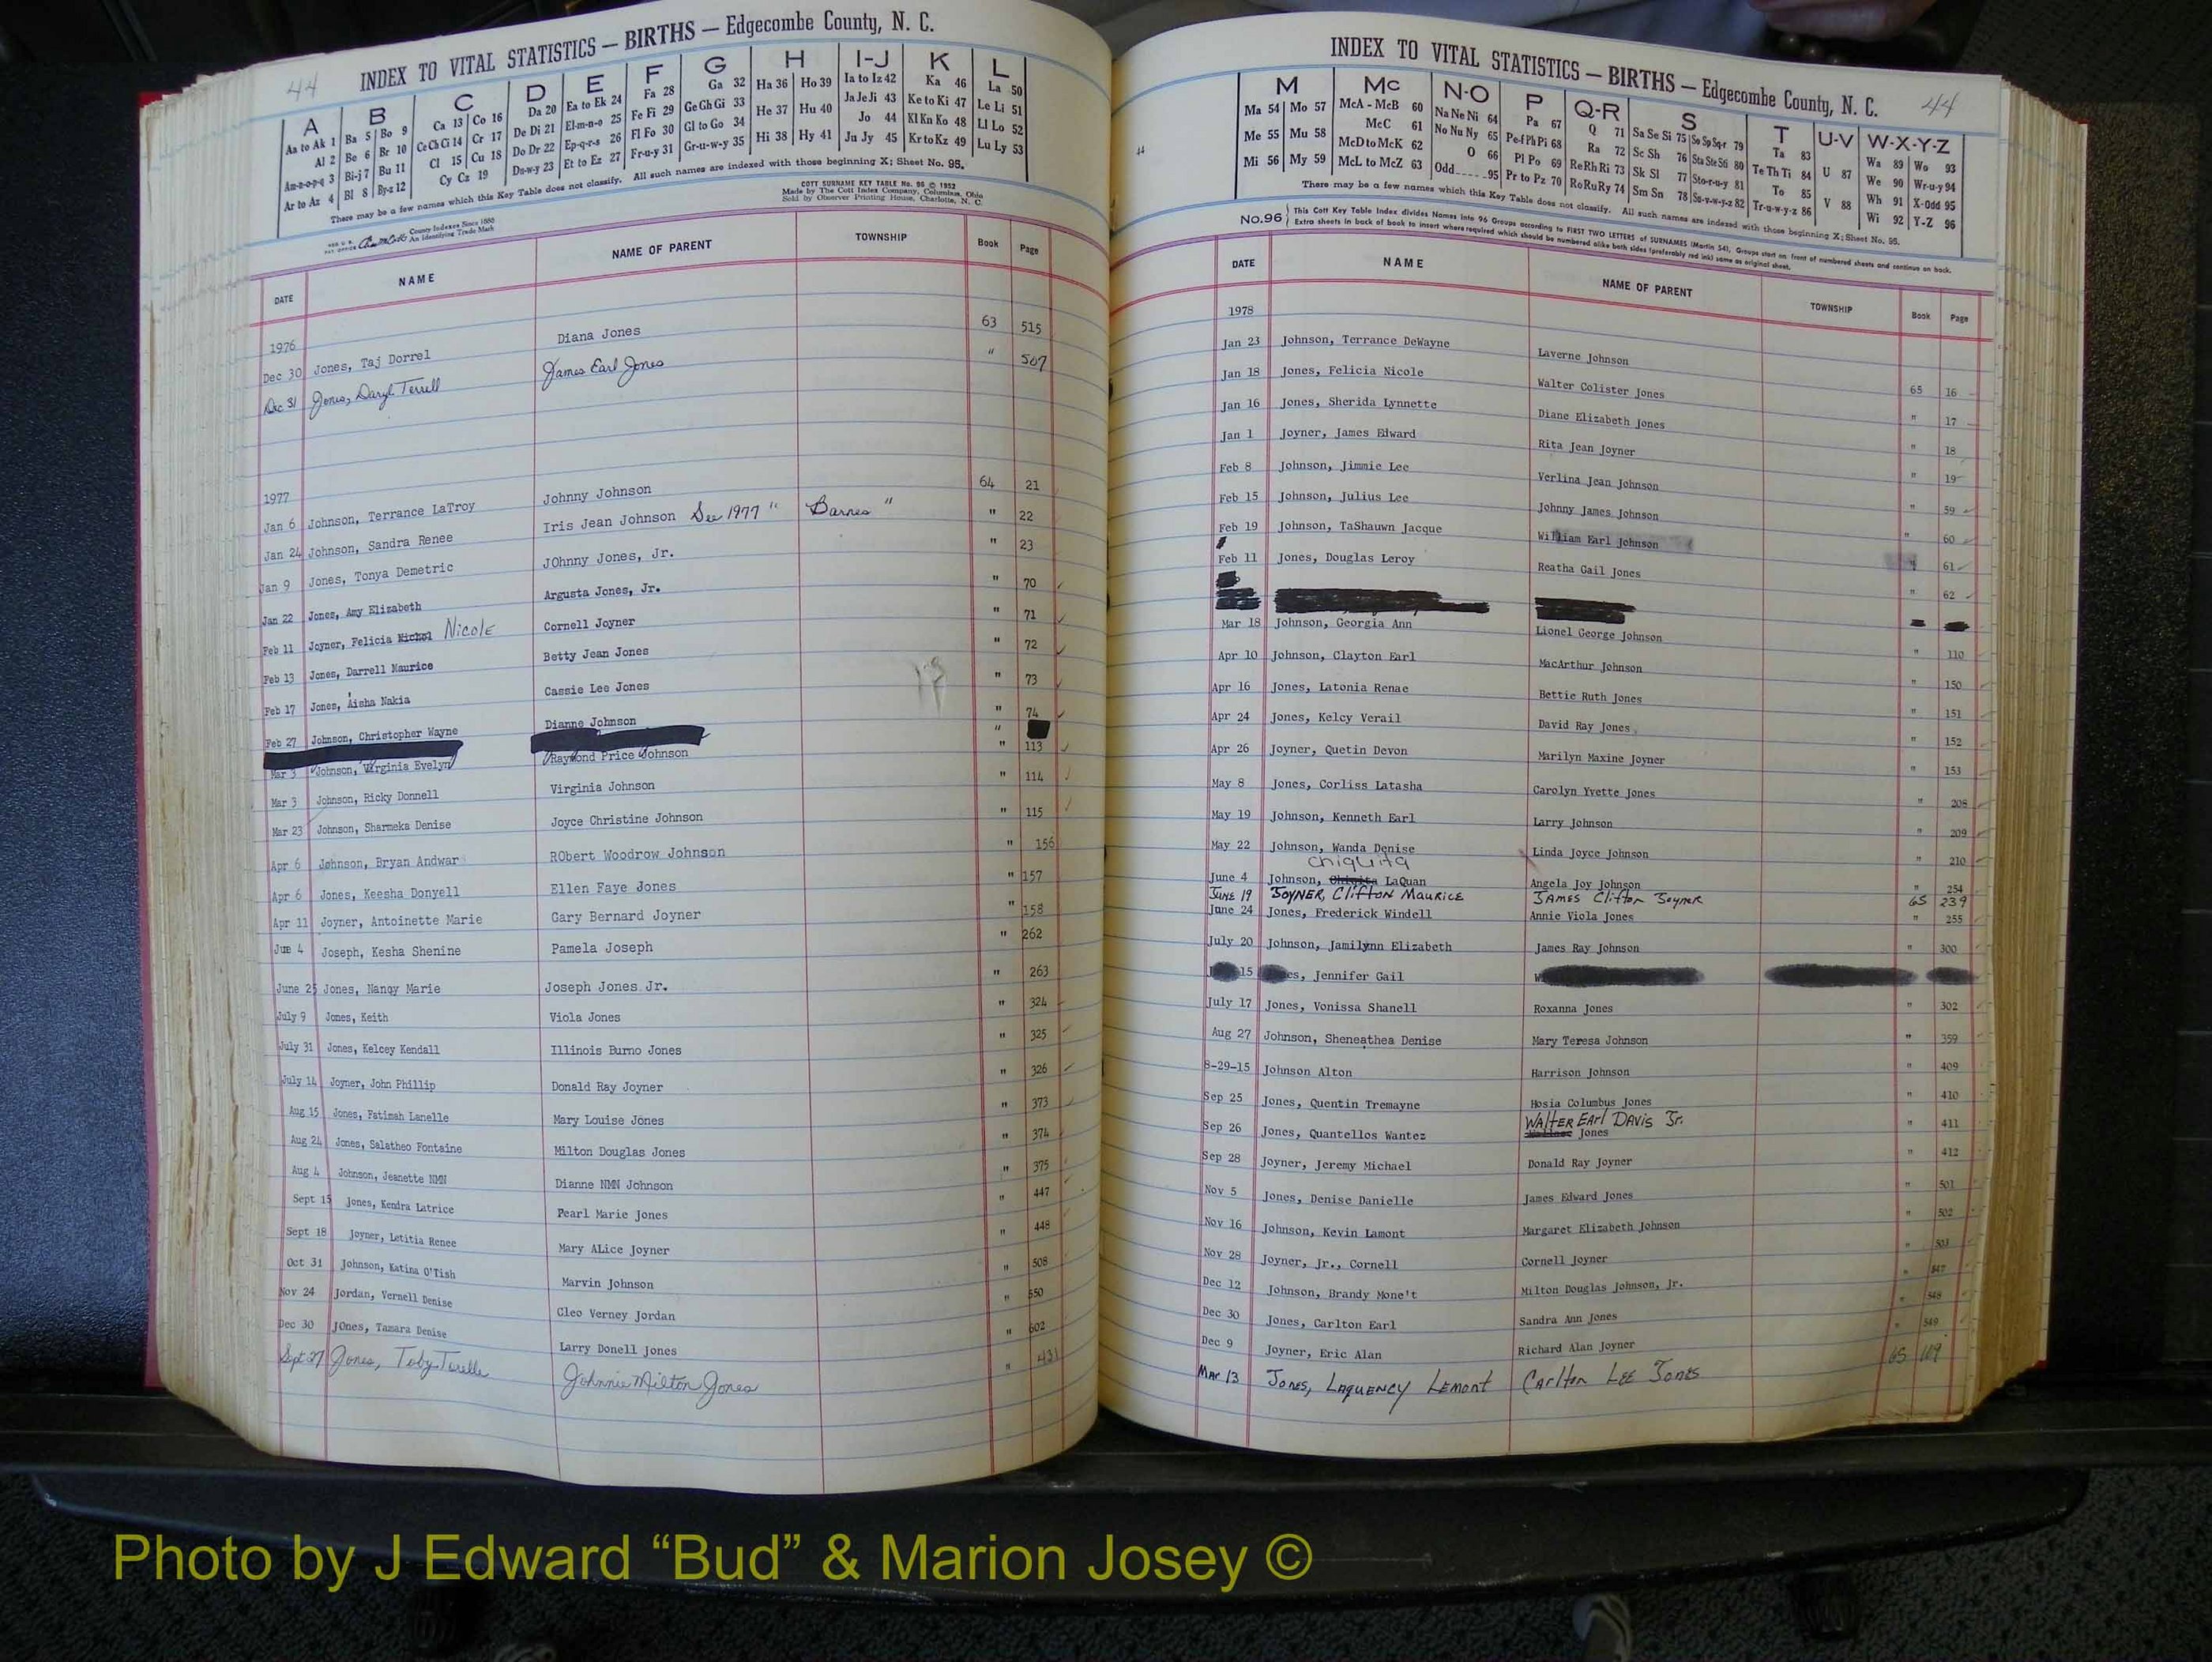 44
INDEX TO VITAL STATISTICS — BIRTHS — Edgecombe County, N. C.
A B C D E F G H I-J K L
Aa to Ak 1 Ba 5 Bo 9 Ca 13 Co 16 Da 20 Ea to Ek 24 Fa 28 Ga 32 Ha 36 Ho 39 Ia to Iz 42 Ka 46 La 50
Al 2 Be 6 Br 10 Ce Ch Ci 14 Cr 17 De Di 21 El-m-n-o 25 Fe Fi 29 Ge Gh Gi 33 He 37 Hu 40 Ja Je Ji 43 Ke to Ki 47 Le Li 51
Am-n-o-p-q 3 Bi-j 7 Bu 11 Cl 15 Cu 18 Do Dr 22 Ep-q-r-s 26 Fl Fo 30 Gl to Go 34 Hi 38 Hy 41 Jo 44 Kl Kn Ko 48 Ll Lo 52
Ar to Az 4 Bl 8 By-z 12 Cy Cz 19 Du-w-y 23 Et to Ez 27 Fr-u-y 31 Gr-u-w-y 35 Ju Jy 45 Kr to Kz 49 Lu Ly 53
There may be a few names which this Key Table does not classify. All such names are indexed with those beginning X; Sheet No. 95.
COTT SURNAME KEY TABLE No. 96 © 1952
Made by The Cott Index Company, Columbus, Ohio
Sold by Observer Printing House, Charlotte, N. C.
County Indexes Since 1888
An Identifying Trade Mark
DATE NAME NAME OF PARENT TOWNSHIP Book Page
1976
Dec 30 Jones, Taj Dorrel Diana Jones 63 515
Dec 31 Jones, Daryl Terrell James Earl Jones " 507
1977
Jan 6 Johnson, Terrance LaTroy Johnny Johnson 64 21
Jan 24 Johnson, Sandra Renee Iris Jean Johnson See 1977 " Barnes " " 22
Jan 9 Jones, Tonya Demetric JOhnny Jones, Jr. " 23
Jan 22 Jones, Amy Elizabeth Argusta Jones, Jr. " 70
Feb 11 Joyner, Felicia Nickol Nicole Cornell Joyner " 71
Feb 13 Jones, Darrell Maurice Betty Jean Jones " 72
Feb 17 Jones, Aisha Nakia Cassie Lee Jones " 73
Feb 27 Johnson, Christopher Wayne Dianne Johnson " 74
"
Mar 3 Johnson, Virginia Evelyn Raymond Price Johnson " 113
Mar 3 Johnson, Ricky Donnell Virginia Johnson " 114
Mar 23 Johnson, Sharmeka Denise Joyce Christine Johnson " 115
Apr 6 Johnson, Bryan Andwar RObert Woodrow Johnson " 156
Apr 6 Jones, Keesha Donyell Ellen Faye Jones " 157
Apr 11 Joyner, Antoinette Marie Gary Bernard Joyner " 158
Jue 4 Joseph, Kesha Shenine Pamela Joseph " 262
June 25 Jones, Nanqy Marie Joseph Jones Jr. " 263
July 9 Jones, Keith Viola Jones " 324
July 31 Jones, Kelcey Kendall Illinois Burno Jones " 325
July 14 Joyner, John Phillip Donald Ray Joyner " 326
Aug 15 Jones, Fatimah Lanelle Mary Louise Jones " 373
Aug 24 Jones, Salatheo Fontaine Milton Douglas Jones " 374
Aug 4 Johnson, Jeanette NMN Dianne NMN Johnson " 375
Sept 15 Jones, Kendra Latrice Pearl Marie Jones " 447
Sept 18 Joyner, Letitia Renee Mary ALice Joyner " 448
Oct 31 Johnson, Katina O'Tish Marvin Johnson " 508
Nov 24 Jordan, Vernell Denise Cleo Verney Jordan " 550
Dec 30 JOnes, Tamara Denise Larry Donell Jones " 602
Sept 27 Jones, Toby Torelle Johnnie Milton Jones " 431
44
INDEX TO VITAL STATISTICS — BIRTHS — Edgecombe County, N. C.
44
M Mc N-O P Q-R S T U-V W-X-Y-Z
Ma 54 Mo 57 McA - McB 60 Na Ne Ni 64 Pa 67 Q 71 Sa Se Si 75 So Sp Sq-r 79 Ta 83 U 87 Wa 89 Wo 93
Me 55 Mu 58 McC 61 No Nu Ny 65 Pe-f Ph Pi 68 Ra 72 Sc Sh 76 Sta Ste Sti 80 Te Th Ti 84 We 90 Wr-u-y 94
Mi 56 My 59 McD to McK 62 O 66 Pl Po 69 Re Rh Ri 73 Sk Sl 77 Sto-r-u-y 81 To 85 V 88 Wh 91 X-Odd 95
McL to McZ 63 Odd 95 Pr to Pz 70 Ro Ru Ry 74 Sm Sn 78 Su-v-w-y-z 82 Tr-u-w-y-z 86 Wi 92 Y-Z 96
There may be a few names which this Key Table does not classify. All such names are indexed with those beginning X; Sheet No. 95.
No.96 This Cott Key Table Index divides Names into 96 Groups according to FIRST TWO LETTERS of SURNAMES (Martin 54). Groups start on front of numbered sheets and continue on back.
Extra sheets in back of book to insert where required which should be numbered alike both sides (preferably red ink) same as original sheet.
DATE NAME NAME OF PARENT TOWNSHIP Book Page
1978
Jan 23 Johnson, Terrance DeWayne Laverne Johnson 65 16
Jan 18 Jones, Felicia Nicole Walter Colister Jones " 17
Jan 16 Jones, Sherida Lynnette Diane Elizabeth Jones " 18
Jan 1 Joyner, James Edward Rita Jean Joyner " 19
Feb 8 Johnson, Jimmie Lee Verlina Jean Johnson " 59
Feb 15 Johnson, Julius Lee Johnny James Johnson " 60
Feb 19 Johnson, TaShauwn Jacque William Earl Johnson " 61
Feb 11 Jones, Douglas Leroy Reatha Gail Jones " 62
Mar 18 Johnson, Georgia Ann Lionel George Johnson " 110
Apr 10 Johnson, Clayton Earl MacArthur Johnson " 150
Apr 16 Jones, Latonia Renae Bettie Ruth Jones " 151
Apr 24 Jones, Kelcy Verail David Ray Jones " 152
Apr 26 Joyner, Quetin Devon Marilyn Maxine Joyner " 153
May 8 Jones, Corliss Latasha Carolyn Yvette Jones " 208
May 19 Johnson, Kenneth Earl Larry Johnson " 209
May 22 Johnson, Wanda Denise Linda Joyce Johnson " 210
Chiquita
June 4 Johnson, LaQuan Angela Joy Johnson " 254
JUNE 19 JOYNER, Clifton MAURICE JAMES Clifton Joyner 65 239
June 24 Jones, Frederick Windell Annie Viola Jones " 255
July 20 Johnson, Jamilynn Elizabeth James Ray Johnson " 300
J 15 es, Jennifer Gail W
July 17 Jones, Vonissa Shanell Roxanna Jones " 302
Aug 27 Johnson, Sheneathea Denise Mary Teresa Johnson " 359
8-29-15 Johnson Alton Harrison Johnson " 409
Sep 25 Jones, Quentin Tremayne Hosia Columbus Jones " 410
WALTER EARl DAVIS Jr.
Sep 26 Jones, Quantellos Wantez Jones " 411
Sep 28 Joyner, Jeremy Michael Donald Ray Joyner " 412
Nov 5 Jones, Denise Danielle James Edward Jones " 501
Nov 16 Johnson, Kevin Lamont Margaret Elizabeth Johnson " 502
Nov 28 Joyner, Jr., Cornell Cornell Joyner " 503
Dec 12 Johnson, Brandy Mone't Milton Douglas Johnson, Jr. " 547
Dec 30 Jones, Carlton Earl Sandra Ann Jones " 548
Dec 9 Joyner, Eric Alan Richard Alan Joyner " 549
MAR 13 JONES, LAQUENCY LEMONT CARlton LEE JONES 65 119
Photo by J Edward “Bud” & Marion Josey ©